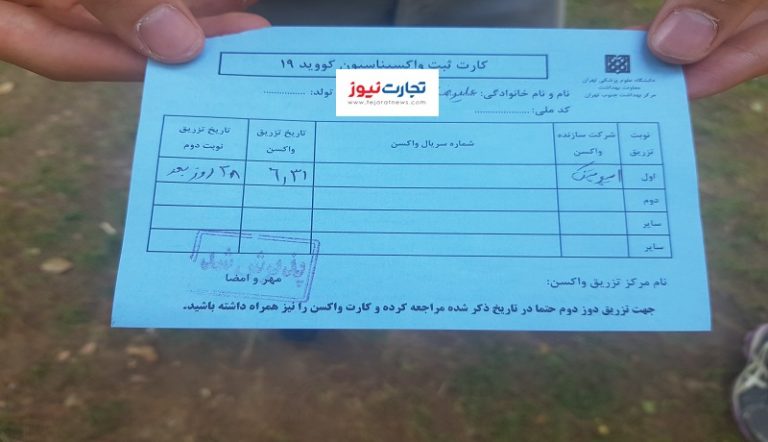 کارت ثبت واکسیناسیون کووید ۱۹
دانشگاه علوم پزشکی تهران
معاونت بهداشت
مرکز بهداشت جنوب تهران
نام و نام خانوادگی: تولد: ...............
کد ملی: ....................
تجارت‌نیوز
www.tejaratnews.com
نوبت تزریق
شرکت سازنده واکسن
شماره سریال واکسن
تاریخ تزریق واکسن
تاریخ تزریق نوبت دوم
اول ۶,۳۱ ۲۸ روز بعد
دوم
سایر
سایر
نام مرکز تزریق واکسن:
مهر و امضا
جهت تزریق دوز دوم حتما در تاریخ ذکر شده مراجعه کرده و کارت واکسن را نیز همراه داشته باشید.